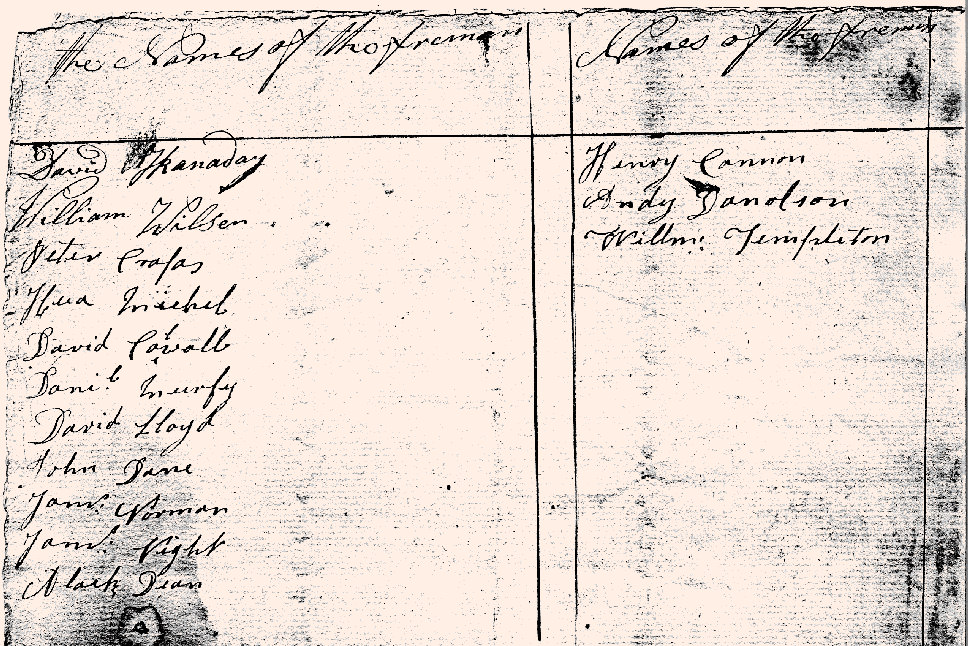 the Names of the freman
David Kanaday
William Wilson
Peter Crafas
Hua Michel
David Covall
Dani.l Murfy
David Lloyd
John Dane
Jams. Norman
Jams. Hight
Alack Dean
Names of the freman
Henry Cannon
Andy Danolson
Willm: Templeton